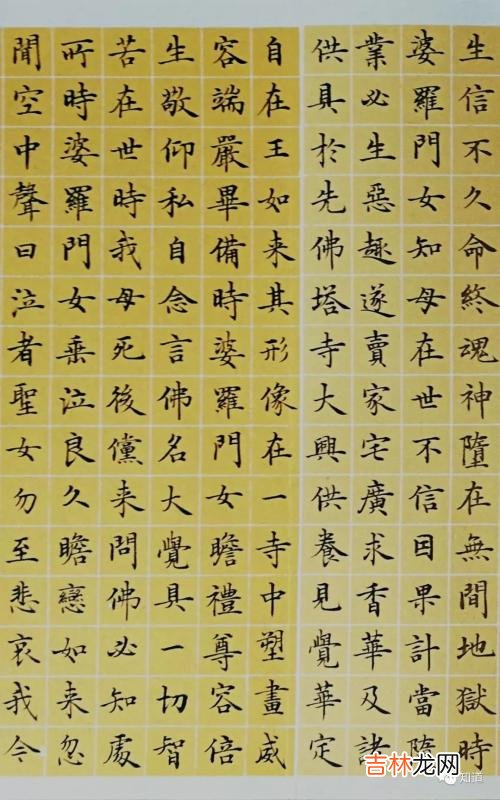 生信不久命終魂神墮在無間地獄時
婆羅門女知母在世不信因果計當隨
業必生惡趣遂賣家宅廣求香華及諸
供具於先佛塔寺大興供養見覺華定
自在王如来其形像在一寺中塑畫威
容端嚴畢備時婆羅門女瞻禮尊容倍
生敬仰私自念言佛名大覺具一切智
苦在世時我母死後儻来問佛必知處
所時婆羅門女垂泣良久瞻戀如来忽
聞空中聲曰泣者聖女勿至悲哀我今
知道
吉林龙网